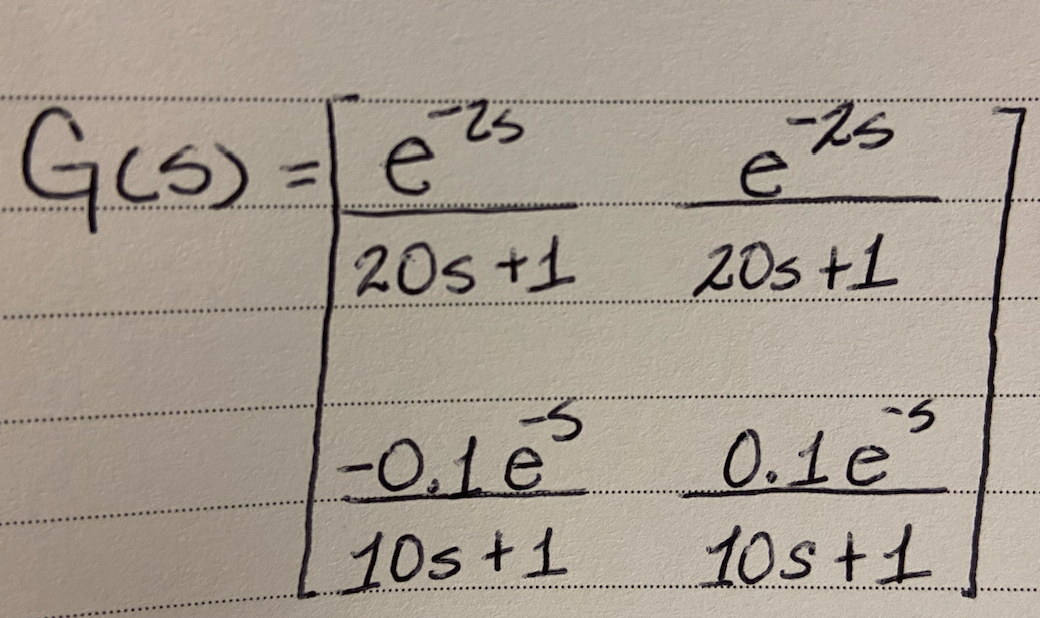 G(s) = [ e^-2s / 20s+1   e^-2s / 20s+1
-0.1e^-s / 10s+1   0.1e^-s / 10s+1 ]